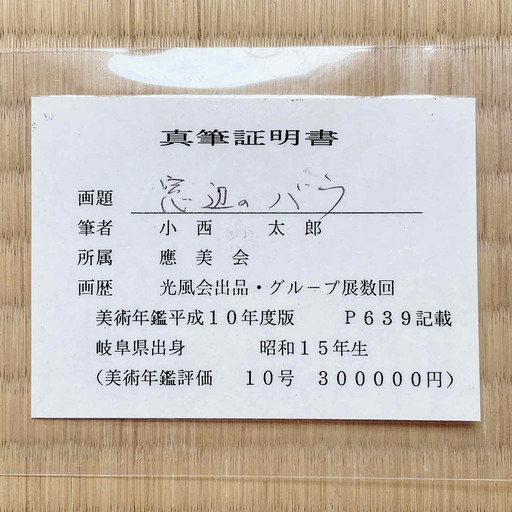 真筆証明書
画題 窓辺のバラ
筆者 小西 太郎
所属 應美会
画歴 光風会出品・グループ展数回
美術年鑑平成10年度版 P639記載
岐阜県出身 昭和15年生
(美術年鑑評価 10号 300000円)